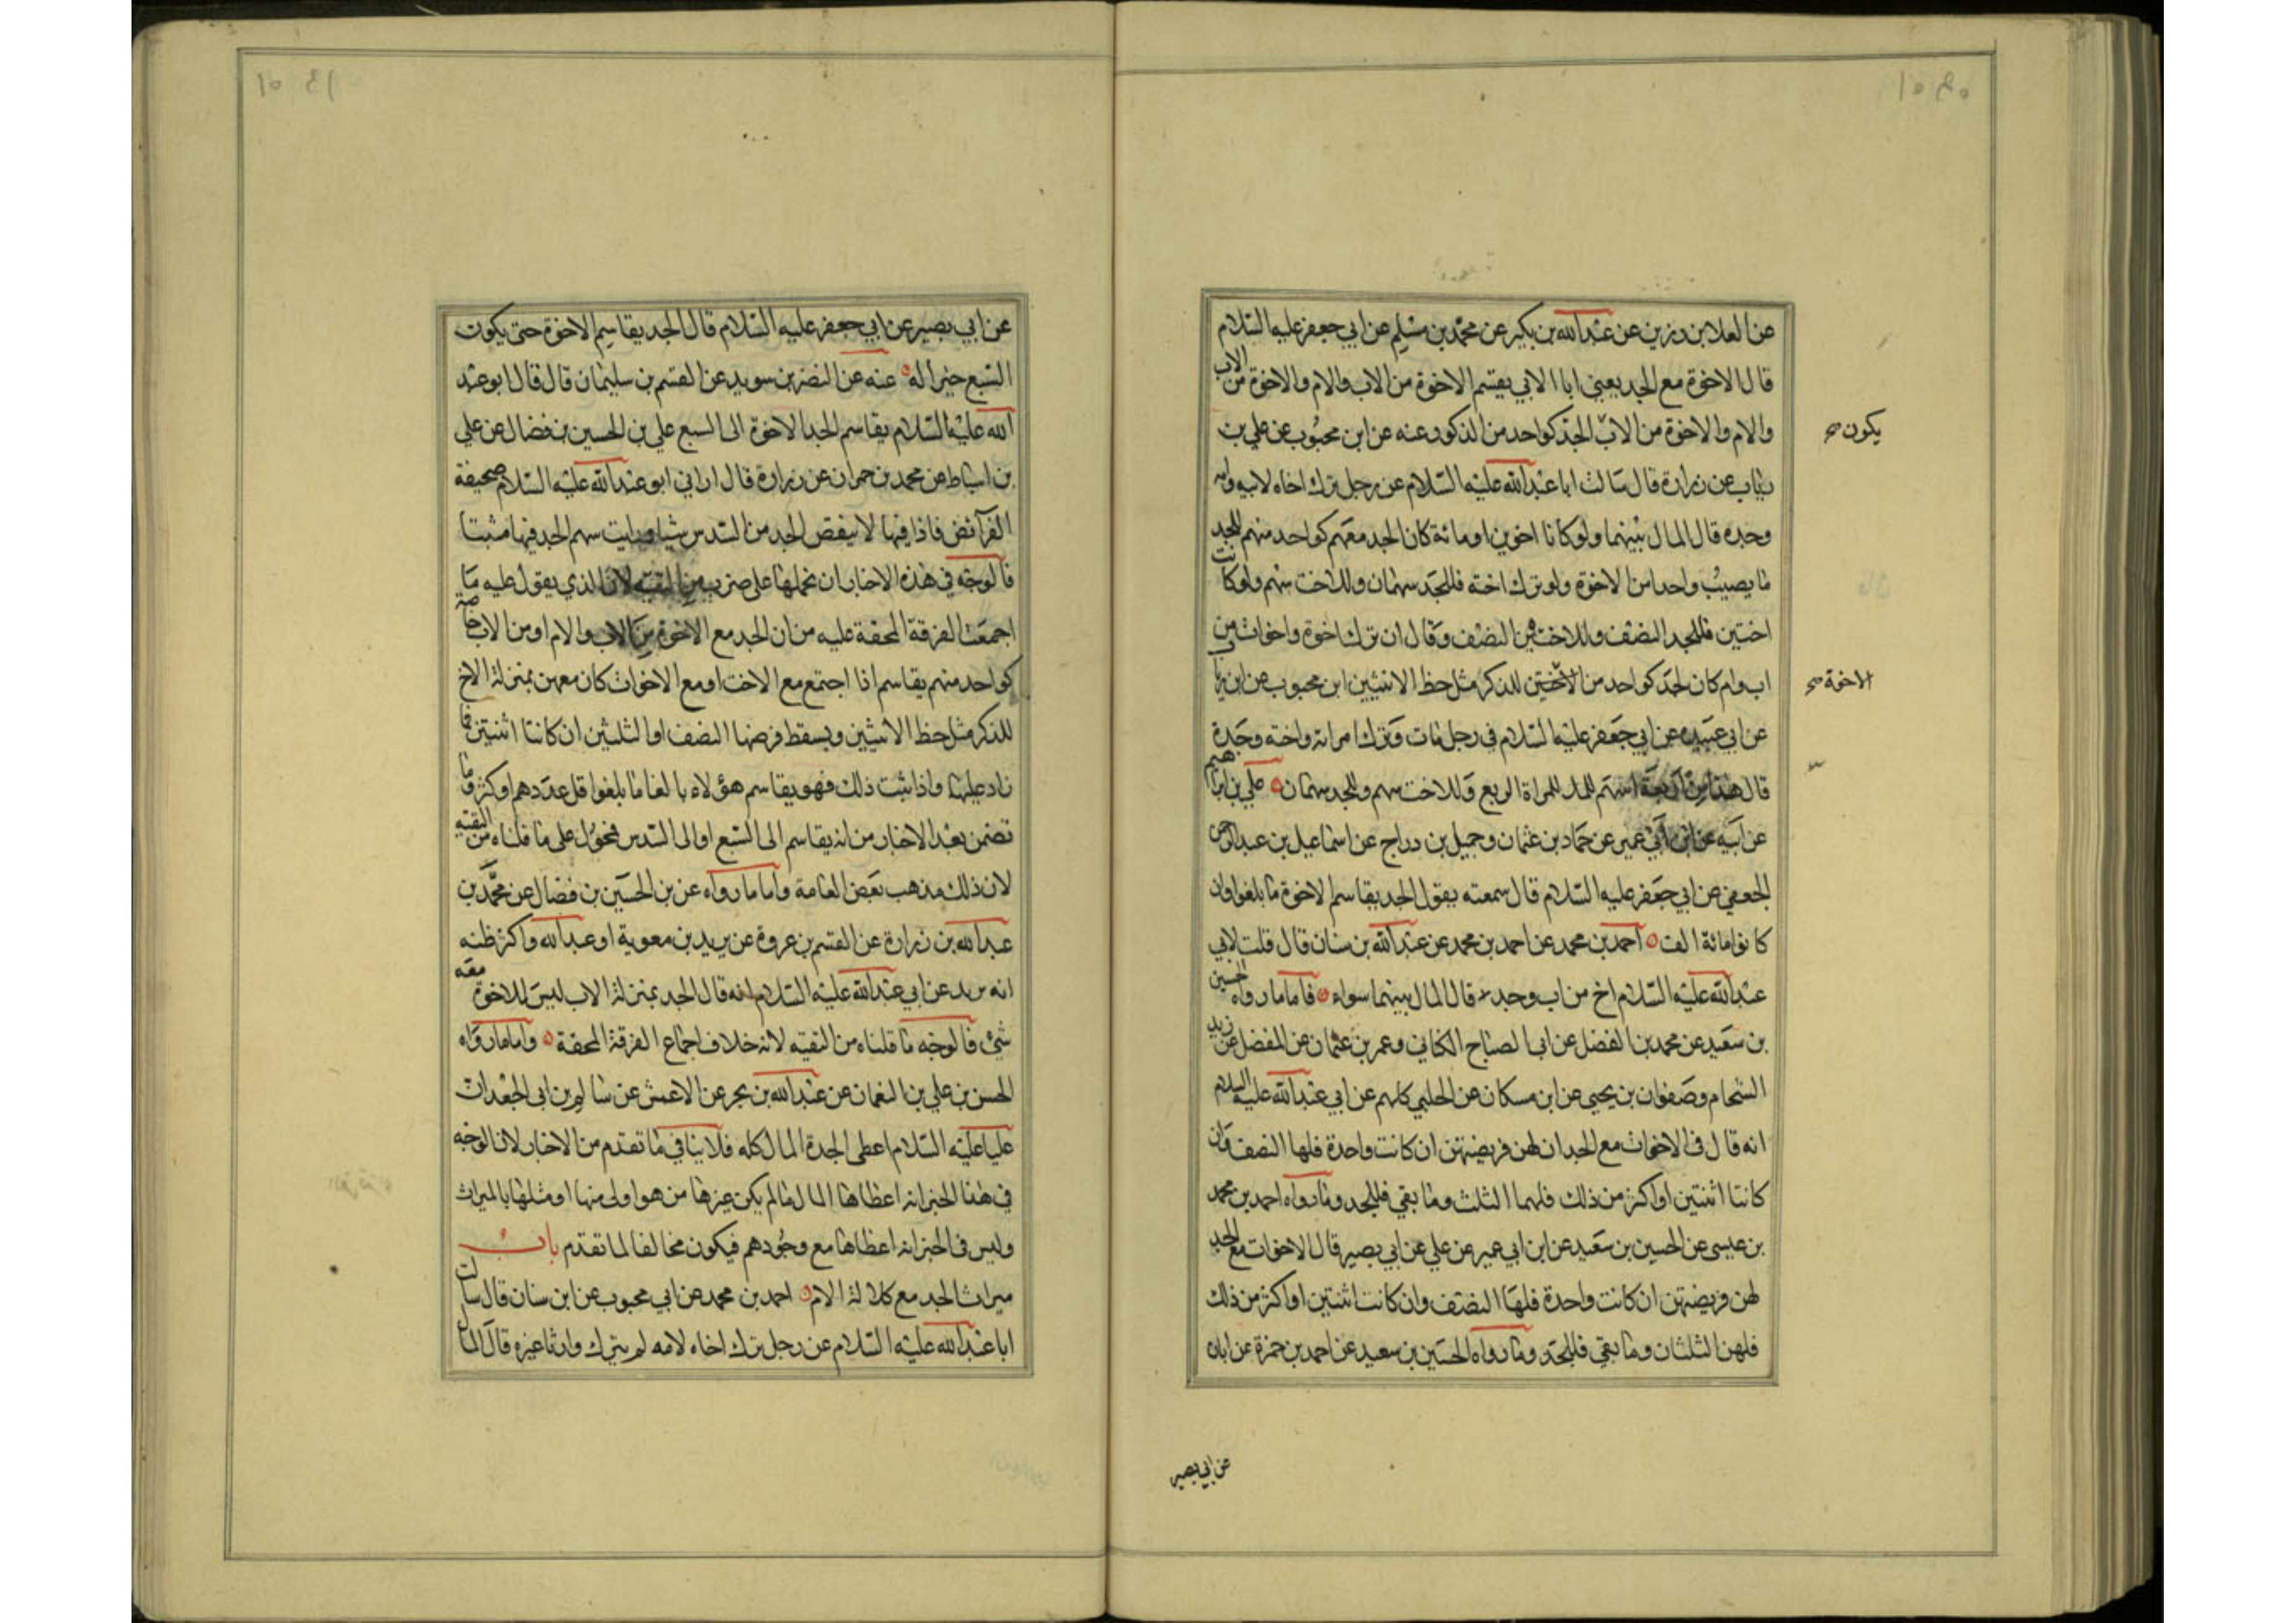 عن العلا بن رزين عن عبدالله بن بكير عن محمد بن مسلم عن ابي جعفر عليه السلام
قال الاخوة مع الجد يعني ابا الابي يقتسم الاخوة من الاب والام والاخوة من الاب
والام والاخوة من الاب الجد كواحد من الذكور عنه عن ابن محبوب عن علي بن
يكون صح
رئاب عن زرارة قال سالت ابا عبدالله عليه السلام عن رجل ترك اخاه لابيه وامه
وجده قال المال بينهما ولو كانا اخوين او مائة كان الجد معهم كواحد منهم للجد
ما يصيب واحدا من الاخوة ولو ترك اخته فللجد سهمان وللاخت سهم ولو كانت
اختين فللجد النصف وللاختين النصف وقال ان ترك اخوة واخوات من
اب وام كان الجد كواحد من الاختين للذكر مثل حظ الانثيين ابن محبوب عن ابن رياب
الاخوة صح
عن ابي عبيده عن ابي جعفر عليه السلام في رجل مات وترك امراته واخته وجده
قال هذا من اربعة اسهم للمراة الربع وللاخت سهم وللجد سهمان علي بن ابراهيم
عن ابيه عن ابن ابي عمير عن حماد بن عثمان وجميل بن دراج عن اسماعيل بن عبدالرحمن
الجعفي عن ابي جعفر عليه السلام قال سمعته يقول الجد يقاسم الاخوة ما بلغوا وان
كانوا مائة الف احمد بن محمد عن احمد بن محمد عن عبدالله بن سنان قال قلت لابي
عبدالله عليه السلام اخ من اب وجد قال المال بينهما سواء فاما ما رواه الحسين
بن سعيد عن محمد بن الفضل عن ابي الصباح الكناني وعمر بن عثمان عن المفضل عن زيد
الشحام وصفوان بن يحيى عن ابن مسكان عن الحلبي كلهم عن ابي عبدالله عليه السلام
انه قال في الاخوات مع الجد ان لهن فريضتهن ان كانت واحدة فلها النصف وان
كانتا اثنتين او اكثر من ذلك فلهما الثلث وما بقي فللجد وما رواه احمد بن محمد
بن عيسى عن الحسين بن سعيد عن ابن ابي عمير عن علي عن ابي بصير قال الاخوات مع الجد
لهن فريضتهن ان كانت واحدة فلها النصف وان كانت اثنتين او اكثر من ذلك
فلهن الثلثان وما بقي فللجد وما رواه الحسين بن سعيد عن احمد بن حمزة عن ابان
عن ابي بصير
عن ابي بصير عن ابي جعفر عليه السلام قال الجد يقاسم الاخوة حتى يكون
السبع خيرا له عنه عن النضر بن سويد عن القسم بن سليمان قال قال ابو عبد
الله عليه السلام يقاسم الجد الاخوة الى السبع علي بن الحسين بن فضال عن علي
بن اسباط عن محمد بن حمران عن زرارة قال اراني ابو عبدالله عليه السلام صحيفة
الفرائض فاذا فيها لا ينقص الجد من السدس شيئا ورايت سهم الجد فيها مثبتا
فالوجه في هذه الاخبار ان نحملها على ضرب من التقيه لان الذي يقول عليه ما
اجمعت الفرقة المحقة عليه من ان الجد مع الاخوة من الاب والام او من الاب خاصة
كواحد منهم يقاسم اذا اجتمع مع الاخت او مع الاخوات كان معهن بمنزلة الاخ
للذكر مثل حظ الانثيين ويسقط فرضها النصف او الثلثين ان كانتا اثنتين فما
زاد عليها واذا ثبت ذلك فهو يقاسم هؤلاء بالغا ما بلغوا قل عددهم او كثر وما
تضمن بعد الاخبار من انه يقاسم الى السبع او الى السدس محمول على ما قلناه من التقيه
لان ذلك مذهب بعض العامة واما ما رواه عن بن الحسين بن فضال عن محمد بن
عبدالله بن زرارة عن القسم بن عروة عن بريد بن معوية او عبدالله واكثر ظنه
انه بريد عن ابي عبدالله عليه السلام انه قال الجد بمنزلة الاب ليس للاخوة معه
شئ فالوجه ما قلناه من التقيه لانه خلاف اجماع الفرقة المحقة واما ما رواه
الحسن بن علي بن النعمان عن عبدالله بن بحر عن الاعمش عن سالم بن ابي الجعد ان
عليا عليه السلام اعطى الجدة المال كله فلا ينافي ما تقدم من الاخبار لان الوجه
في هذا الخبر انه اعطاها المال ما لم يكن غيرها من هو اولى منها او مثلها بالميراث
وليس في الخبر انه اعطاها مع وجودهم فيكون مخالفا لما تقدم باب
ميراث الجد مع كلالة الام احمد بن محمد عن ابي محبوب عن ابن سنان قال سالت
ابا عبدالله عليه السلام عن رجل ترك اخاه لامه لم يترك وارثا غيره قال المال